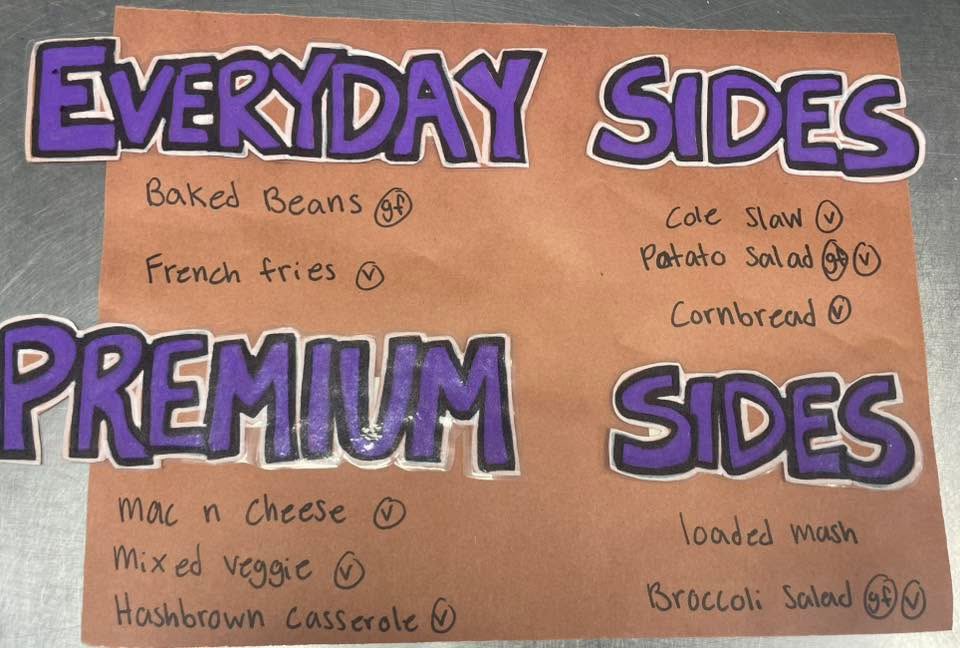 EVERYDAY SIDES
Baked Beans gf
French fries v
Cole Slaw v
Potato Salad gf v
Cornbread v
PREMIUM SIDES
Mac n Cheese v
Mixed veggie v
Hashbrown Casserole v
loaded mash
Broccoli Salad gf v